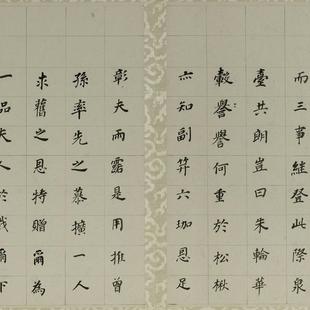 而三事継登此際泉
臺共朗豈曰朱輪華
轂譽譽何重於松楸
亦知副笄六珈恩足
彰夫而露是用推曾
孫率先之慕擴一人
求舊之恩特贈爾為
一品夫人於戲爾